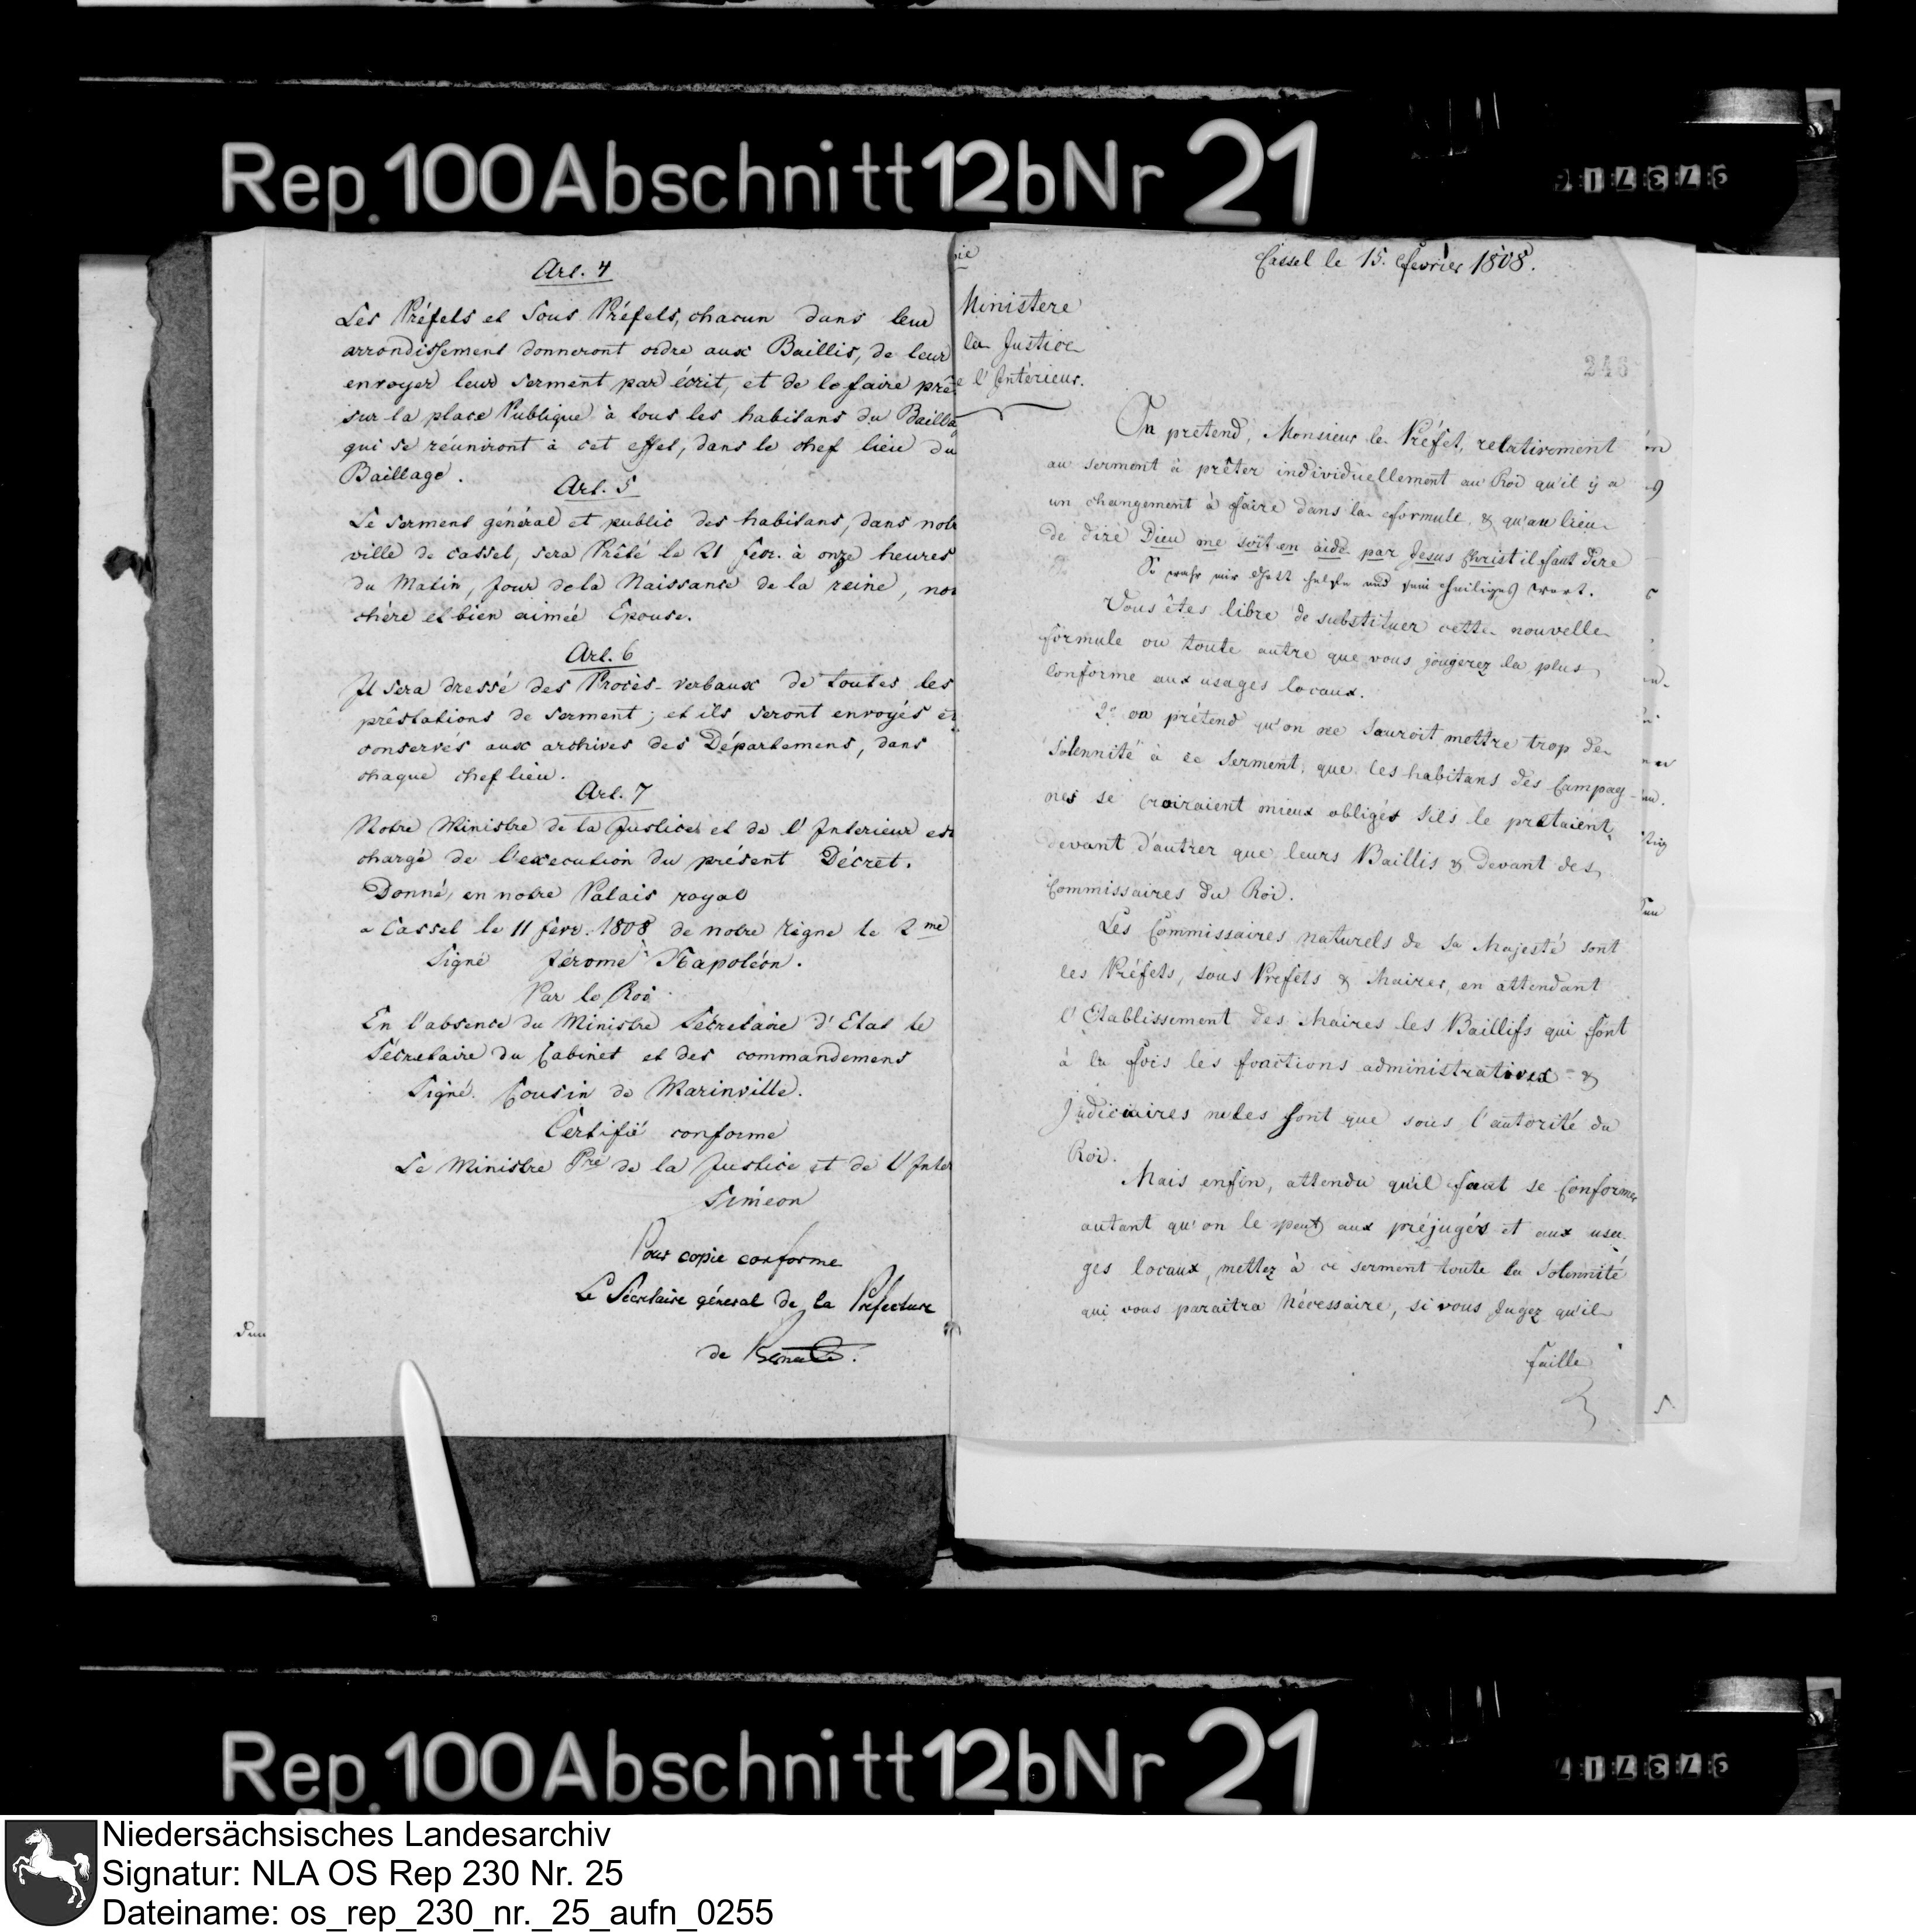 Rep. 100 Abschnitt 12b Nr 21
Art. 4
Les Préfets et Sous Préfets, chacun dans leur
arrondissement donneront ordre aux Baillis, de leur
envoyer leur serment par écrit, et de le faire prê
sur la place Publique à tous les habitans du Bailla
qui se réuniront à cet effet, dans le chef lieu du
Baillage.
Art. 5
Le serment général et public des habitans, dans notr
ville de Cassel, sera Prêté le 21 fevr. à onze heures
du Matin, Jour de la Naissance de la reine, not
chère et bien aimée Epouse.
Art. 6
Il sera dressé des Procès-verbaux de toutes les
prêstations de Serment; et ils seront envoyés et
conservés aux archives des Départemens, dans
chaque chef lieu.
Art. 7
Notre Ministre de la Justice et de l'Interieur est
chargé de l'execution du présent Décret.
Donné, en notre Palais royal
a Cassel le 11 fevr. 1808 de notre règne le 2me
Signé Jérome Napoléon.
Par le Roi
En l'absence du Ministre Sécretaire d'Etat le
Sécretaire du Cabinet et des commandemens
Signé. Cousin de Marinville.
Certifié conforme
Le Ministre Pre de la Justice et de l'Inter
Siméon
Pour copie conforme
Le Sécretaire général de la Préfecture
de
Cassel le 15. Fevrier 1808.
Ministere
la Justice
e l'Intérieur.
246
On prétend, Monsieur le Préfet, relativement
au serment à prêter individuellement au Roi qu'il y a
un changement à faire dans la formule, & qu'au lieu
de dire Dieu me soit en aide par Jesus Christ il faut dire
So wahr mir Gott helfe und sein heiliges Wort.
Vous êtes libre de substituer cette nouvelle
formule ou toute autre que vous jougerez la plus
conforme aux usages locaux.
2° on prétend qu'on ne sauroit mettre trop de
solennité à ce serment, que les habitans des Campag-
nes se croiraient mieux obligés s'ils le pretaient
devant d'autrer que leurs Baillis & devant des
Commissaires du Roi.
Les Commissaires naturels de sa Majesté sont
les Préfets, sous Prefets & Maires, en attendant
l'Etablissement des Maires les Baillifs qui font
à la fois les fonctions administratives &
judiciaires ne les font que sous l'autorité du
Roi.
Mais enfin, attendu qu'il faut se conformer
autant qu'on le peut aux préjugés et aux usa-
ges locaux, mettez à ce serment toute la solennité
qui vous paraitra Nécessaire, si vous Jugez qu'il
faille
Rep. 100 Abschnitt 12b Nr 21
Niedersächsisches Landesarchiv
Signatur: NLA OS Rep 230 Nr. 25
Dateiname: os_rep_230_nr._25_aufn_0255